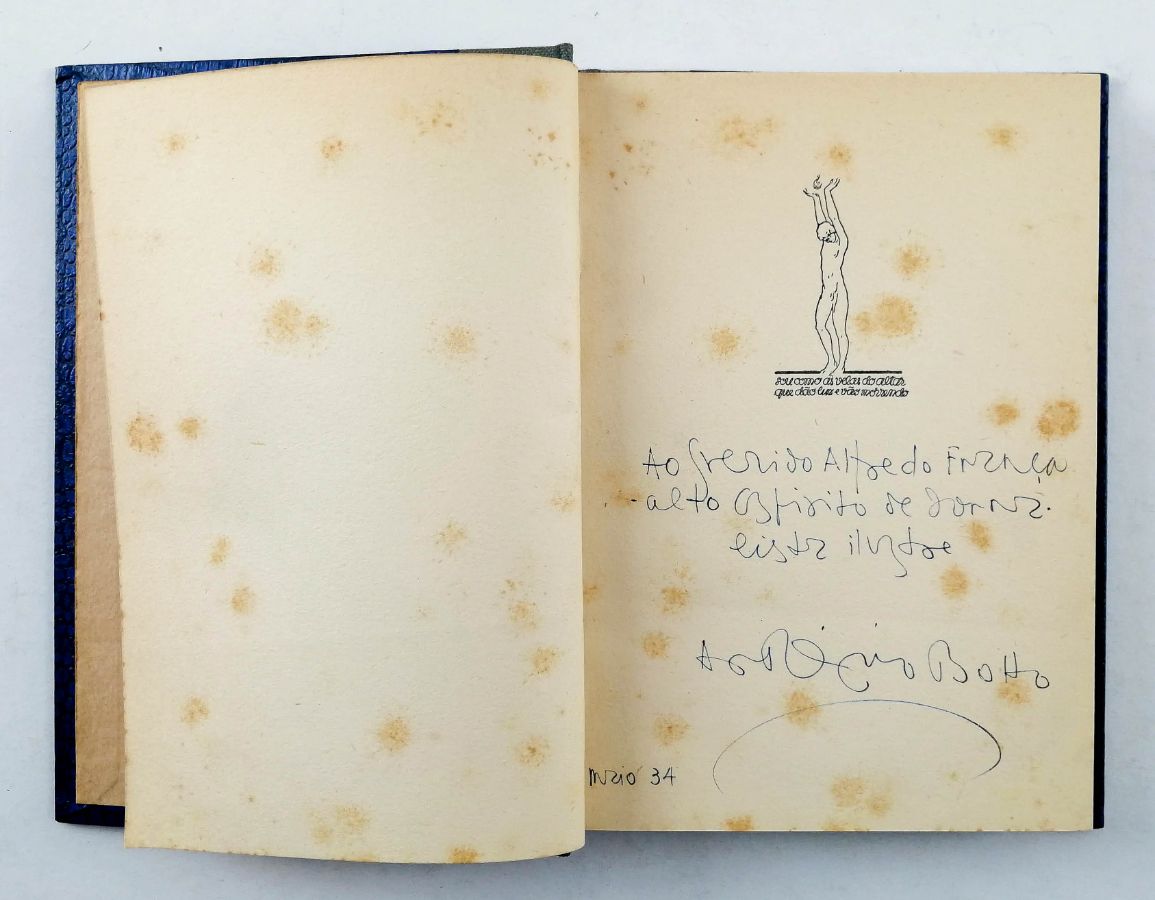 sou como as velas do altar
que dão luz e vão morrendo
Ao querido Alfredo França
alto espirito de Jorna-
lista ilustre
Antonio Botto
Maio 34